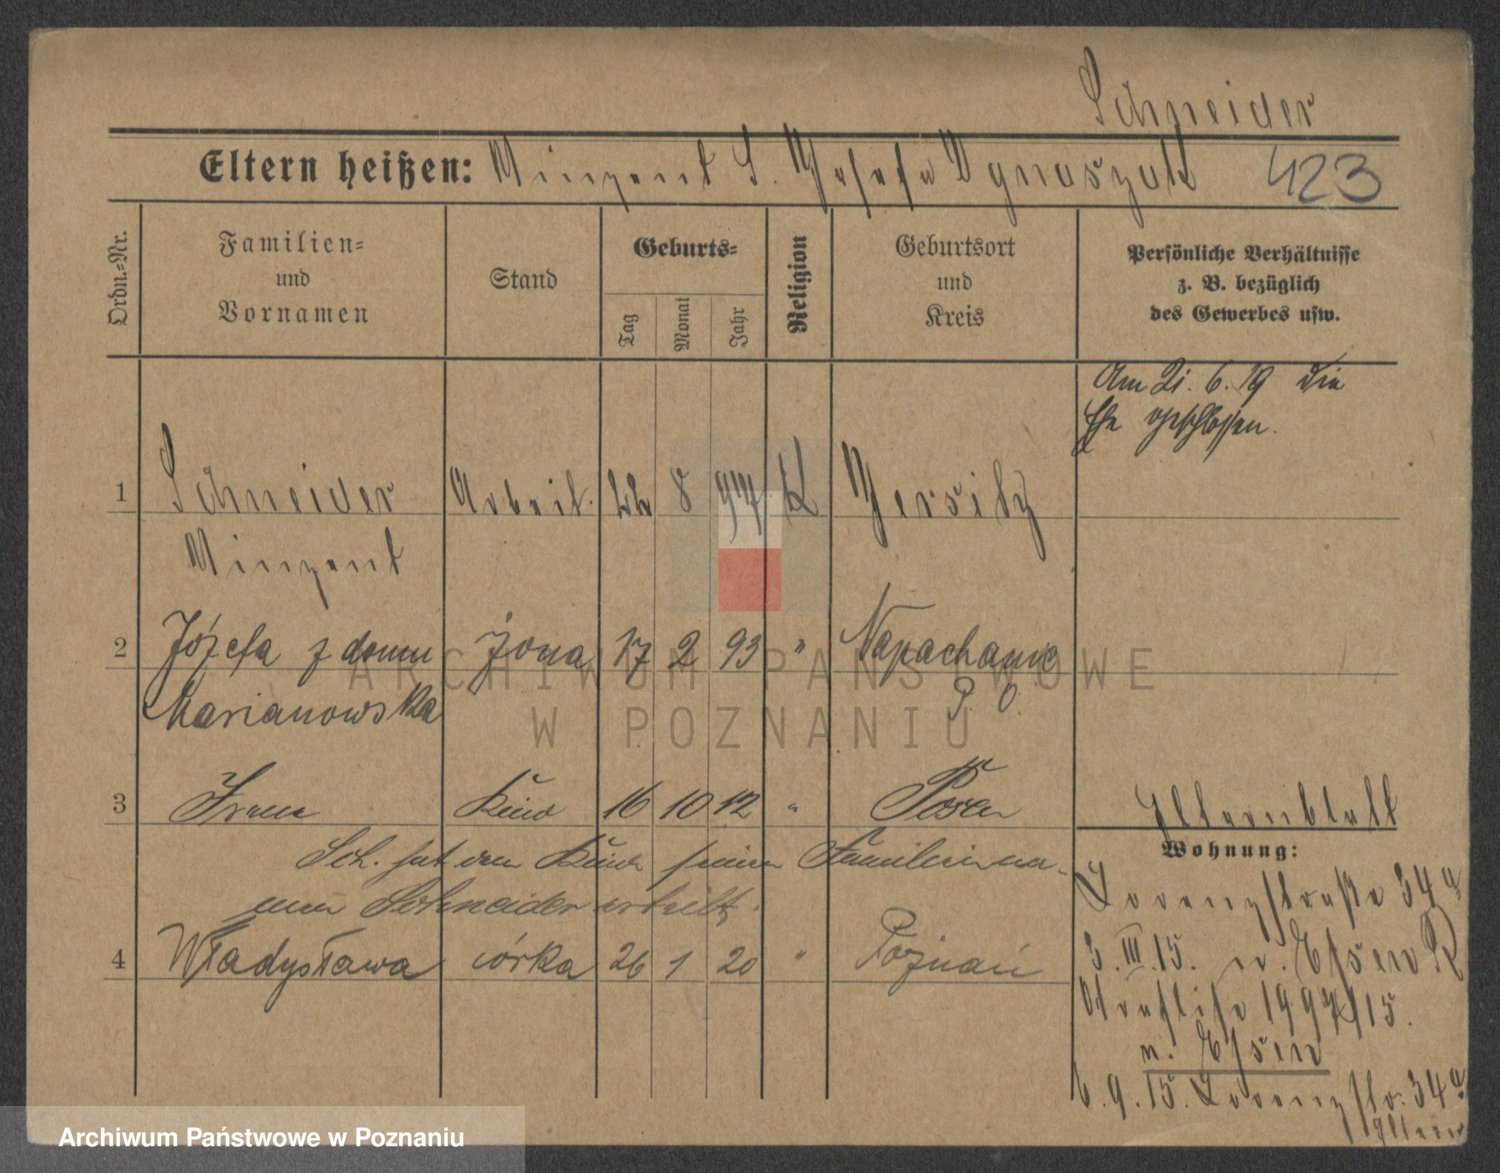 Schneider
Eltern heißen: Vinzent S. Josefa Ignaszak 423
Ordn.-Nr.
Familien-
und
Vornamen
Stand
Geburts-
Tag
Monat
Jahr
Religion
Geburtsort
und
Kreis
Persönliche Verhältnisse
z. B. bezüglich
des Gewerbes usw.
Am 21. 6. 19 die
Ehe geschlossen.
1 Schneider Arbeit. 22 8 97 K Jersitz
Vinzent
2 Józefa z domu Żona 17 2 93 " Napachanie
Marianowska P. O.
3 Irene Kind 16 10 12 " Posen
Sch. hat dem Kinde seinen Familienna-
men Schneider erteilt.
4 Władysława córka 26 1 20 " Poznań
Elternblatt
Wohnung:
Lorenzstraße 34a
3. III. 15. n. Essen R
1997/15.
n. Essen
6. 9. 15. Lorenzstr. 34a
Eltern
ARCHIWUM PAŃSTWOWE
W POZNANIU
Archiwum Państwowe w Poznaniu